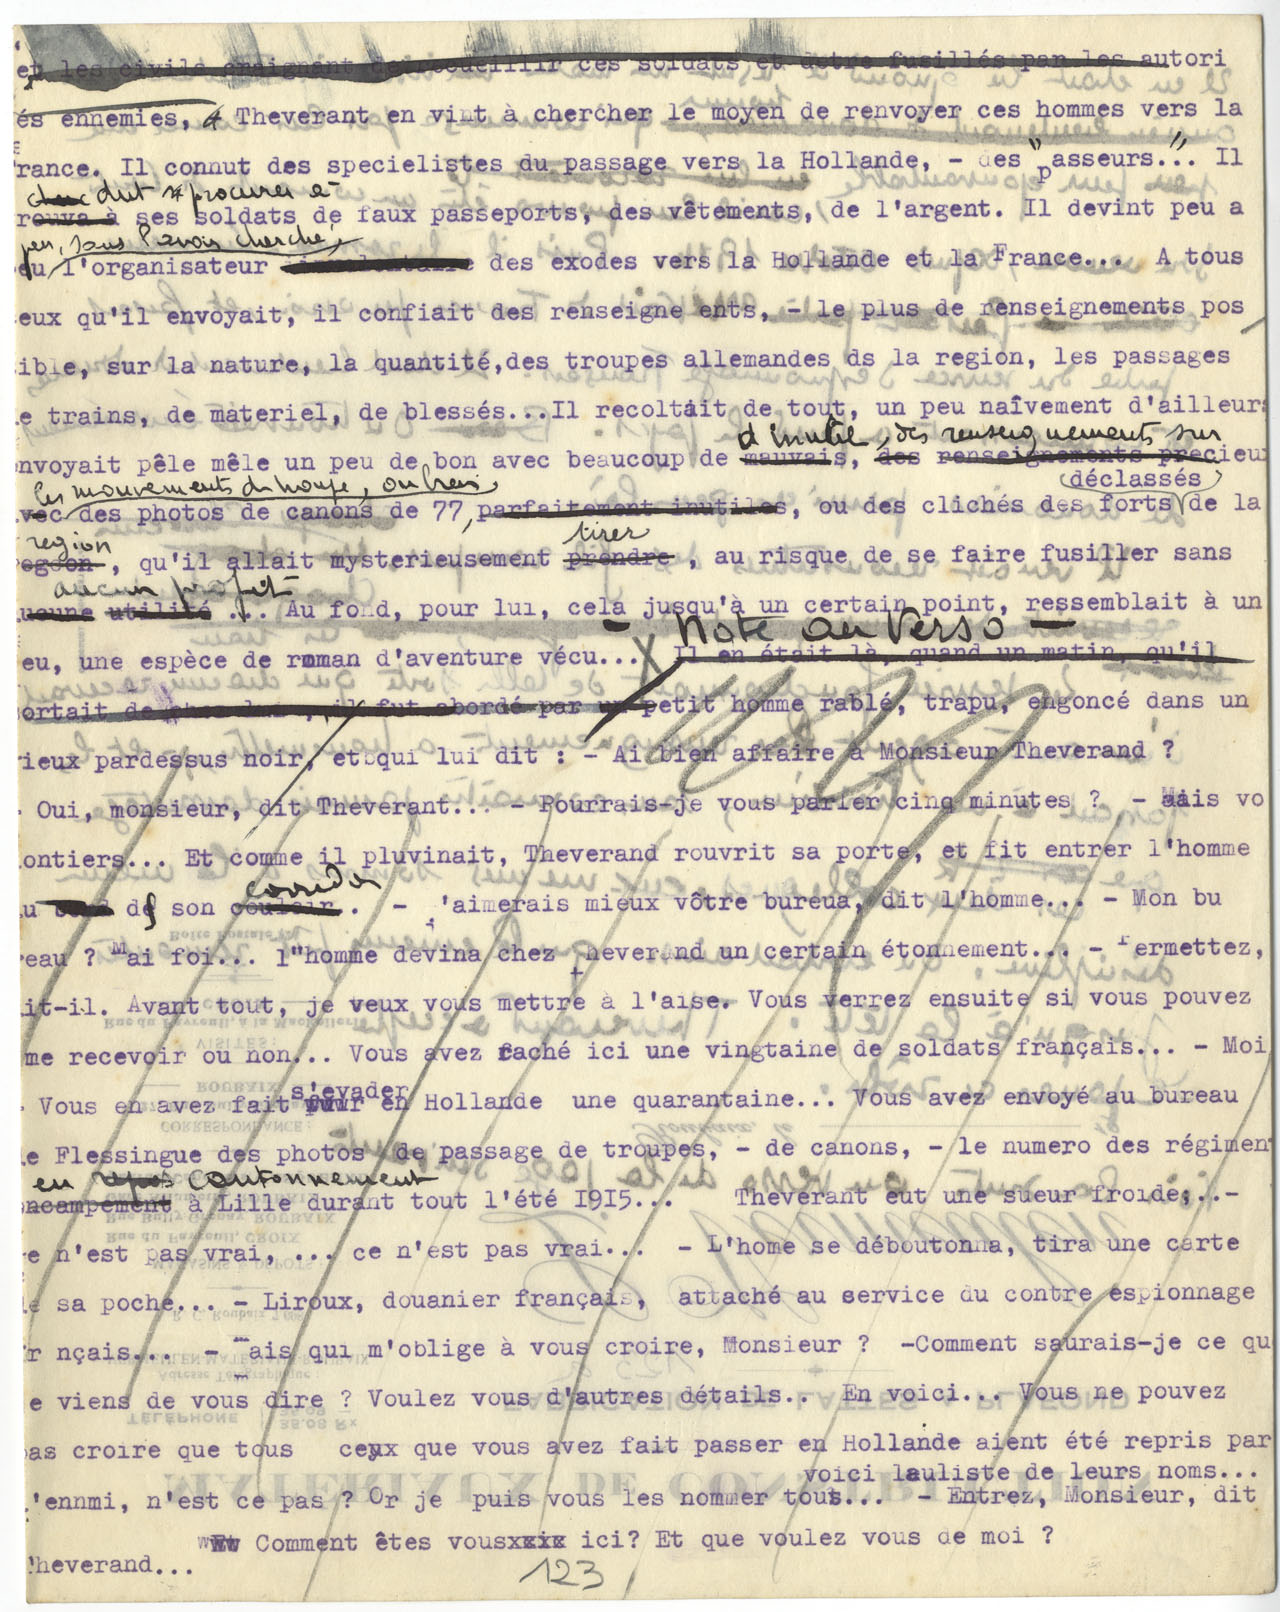 et les civils craignant de recueillir ces soldats et detre fusillés par les autori
és ennemies, Theverant en vint à chercher le moyen de renvoyer ces hommes vers la
rance. Il connut des specielistes du passage vers la Hollande, - des "passeurs"... Il
dut procurer à
rouva à ses soldats de faux passeports, des vêtements, de l'argent. Il devint peu a
peu, sans l'avoir cherché,
eu l'organisateur involontaire des exodes vers la Hollande et la France... A tous
eux qu'il envoyait, il confiait des renseigne ents, - le plus de renseignements pos
ible, sur la nature, la quantité,des troupes allemandes ds la region, les passages
e trains, de materiel, de blessés...Il recoltait de tout, un peu naîvement d'ailleurs
d'inutile, des renseignements sur
nvoyait pêle mêle un peu de bon avec beaucoup de mauvais, des renseignements precieux
les mouvements de troupe, ou bien
déclassés
vec des photos de canons de 77, parfaitement inutiles, ou des clichés des forts de la
region
tirer
egoon, qu'il allait mysterieusement prendre , au risque de se faire fusiller sans
aucun profit
ucune utilité ... Au fond, pour lui, cela jusqu'à un certain point, ressemblait à un
- Note au Verso -
eu, une espèce de roman d'aventure vécu... X Il en était là, quand un matin, qu'il
ortait de chez lui, il fut abordé par un petit homme rablé, trapu, engoncé dans un
ieux pardessus noir, et qui lui dit : - Ai bien affaire à Monsieur Theverand ?
- Oui, monsieur, dit Theverant... - Pourrais-je vous parler cinq minutes ? - Mais vo
ontiers... Et comme il pluvinait, Theverand rouvrit sa porte, et fit entrer l'homme
corridor
u de son couloir. - j'aimerais mieux vôtre bureua, dit l'homme... - Mon bu
eau ? Mai foi... l"homme devina chez Theverand un certain étonnement... - Permettez,
it-il. Avant tout, je veux vous mettre à l'aise. Vous verrez ensuite si vous pouvez
me recevoir ou non... Vous avez caché ici une vingtaine de soldats français... - Moi
s'evader
- Vous en avez fait fuir en Hollande une quarantaine... Vous avez envoyé au bureau
e Flessingue des photos de passage de troupes, - de canons, - le numero des régiment
en repos cantonnement
ncampement à Lille durant tout l'été 1915... Theverant eut une sueur froide;..-
e n'est pas vrai, ... ce n'est pas vrai... - L'home se déboutonna, tira une carte
e sa poche... - Liroux, douanier français, attaché au service du contre espionnage
r nçais... - Mais qui m'oblige à vous croire, Monsieur ? -Comment saurais-je ce qu
e viens de vous dire ? Voulez vous d'autres détails.. En voici... Vous ne pouvez
as croire que tous ceux que vous avez fait passer en Hollande aient été repris par
voici lauliste de leurs noms...
'ennmi, n'est ce pas ? Or je puis vous les nommer tous... - Entrez, Monsieur, dit
Et Comment êtes vousxxix ici? Et que voulez vous de moi ?
heverand...
123